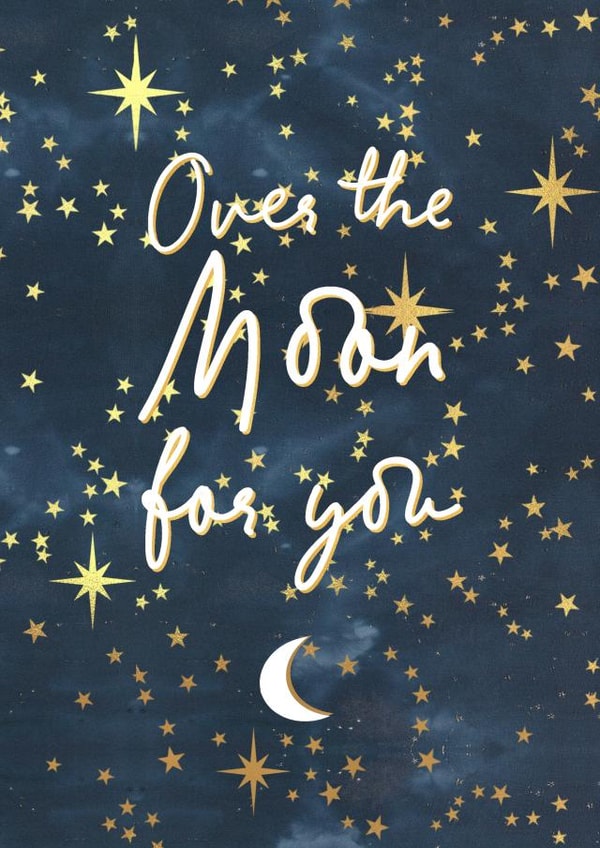 Over the
Moon
for you